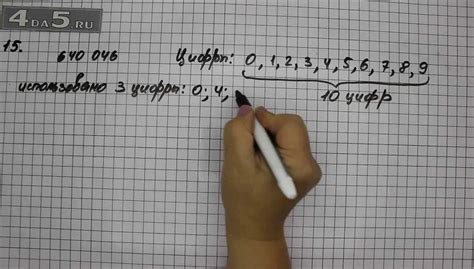 4DA5.RU
15. 640 046 Цифры: 0, 1, 2, 3, 4, 5, 6, 7, 8, 9
10 цифр
использовано 3 цифры: 0; 4;